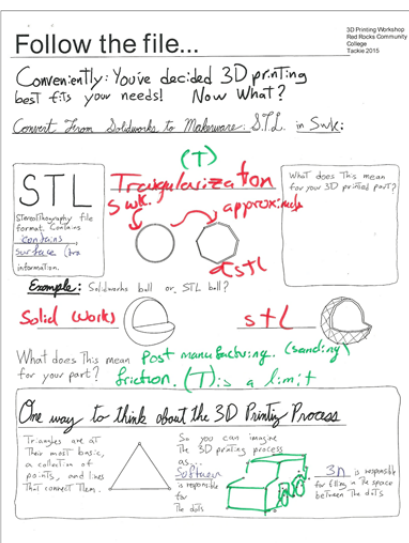 3D Printing Workshop
Red Rocks Community
College
Tackie 2015
Follow the file...
Conveniently: You've decided 3D printing
best fits your needs! Now What?
Convert From Solidworks to Makerware: S.T.L. in Swk:
(T)
STL
Stereolithography file
format. Contains
contains
surface
information.
Triangularization
Swk.
approximate
stl
What does This mean
for your 3D printed part?
Example: Solidworks ball or STL ball?
Solid Works
stl
What does This mean
for your part?
Post manufacturing. (sanding)
friction. (T) is a limit
One way to think about the 3D Printing Process
Triangles are at
Their most basic,
a collection of
points, and lines
That connect Them.
So you can imagine
The 3D printing process
as...
Software
is responsible
for
The dots
is responsible
for filling in The space
between The dots